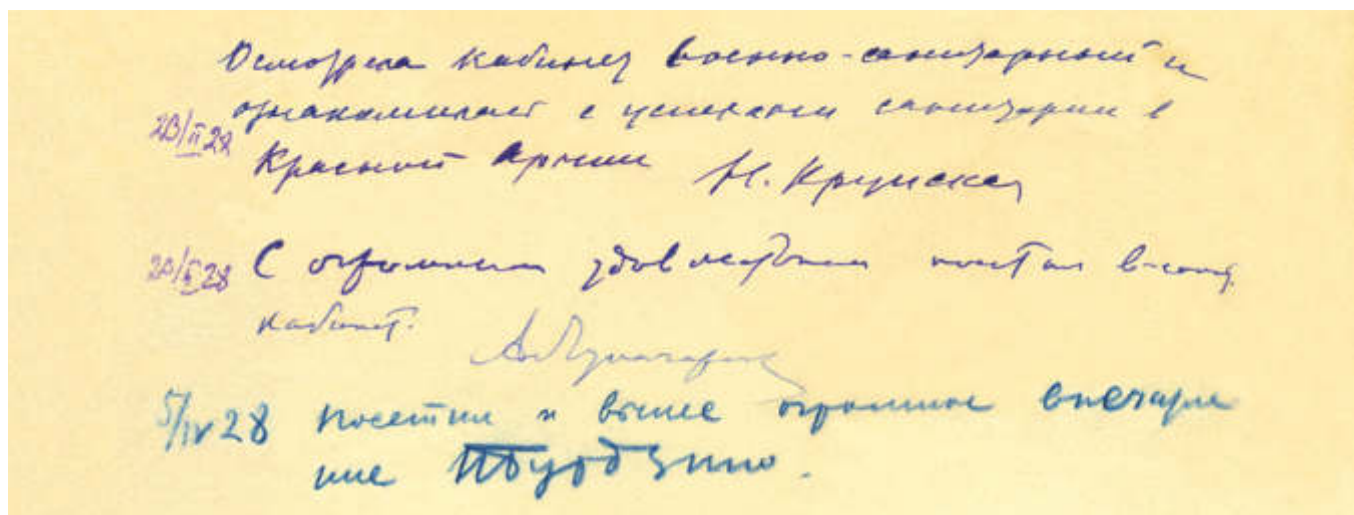 Осмотрела кабинет военно-санитарный и
ознакомилась с успехами санитарии в
23/II 28 Красной Армии Н. Крупская
С огромным удовольствием посетил
кабинет.
А. Луначарский
5/IV 28 Посетил и вынес огромное впечатле
ние